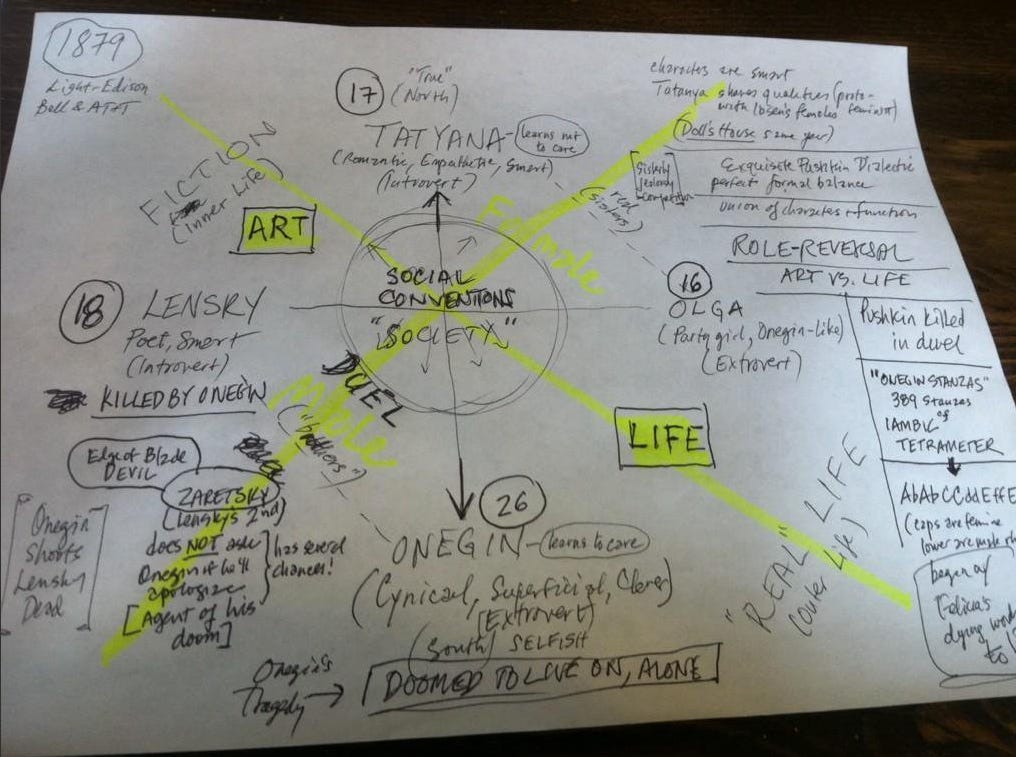 1879
Light-Edison
Bell & AT&T
FICTION
(Inner Life)
ART
17
"True"
(North)
TATYANA-
learns not
to care
(Romantic, Empathetic, Smart)
(Introvert)
characters are smart
Tatanya shares qualities (proto-
with Ibsen's females feminist)
(Doll's House same year)
Sisterly
Jealousy
competition
real
(sisters)
Exquisite Pushkin Dialectic
perfect formal balance
union of character + function
ROLE-REVERSAL
ART VS. LIFE
Female
SOCIAL
CONVENTIONS
"SOCIETY"
18
LENSKY
Poet, Smart
(Introvert)
KILLED BY ONEGIN
16
OLGA
(Party girl, Onegin-like)
(Extrovert)
Pushkin killed
in duel
"ONEGIN STANZAS"
389 Stanzas
of
IAMBIC
TETRAMETER
AbAbCCddEffE
(caps are femine
lower are
began w/
Felicia's
dying word
to
DUEL
Male
("brothers")
LIFE
"REAL" LIFE
(outer life)
Edge of Blade
DEVIL
ZARETSKY
(Lensky's 2nd)
does NOT ask
Onegin if he'll
apologize
[Agent of his
doom]
has several
chances!
[Onegin
Shoots
Lensky
Dead]
26
ONEGIN-
learns to care
(Cynical, Superficial, Clever)
(Extrovert)
(South) SELFISH
Onegin's
Tragedy
DOOMED TO LIVE ON, ALONE